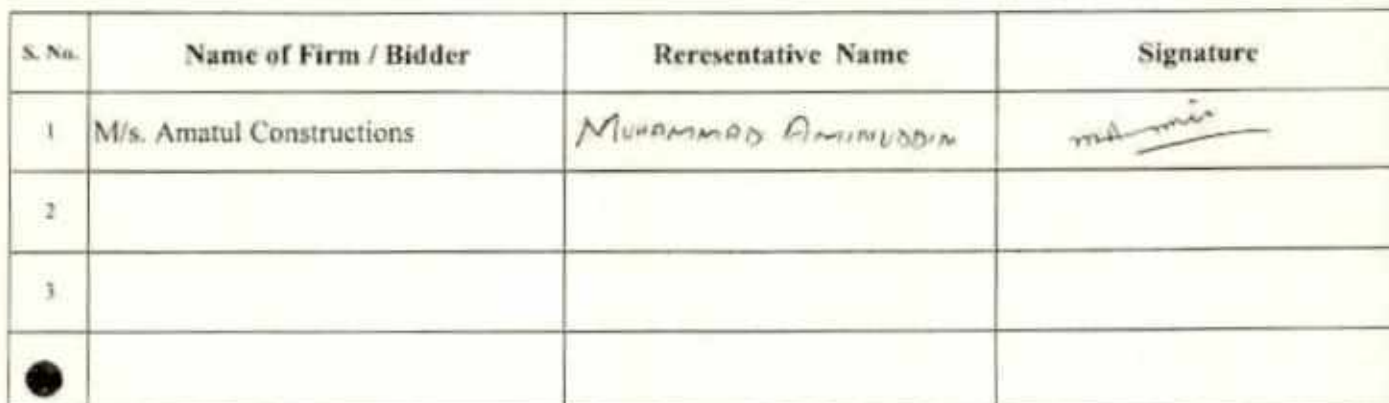 S. No. Name of Firm / Bidder Reresentative Name Signature
1 M/s. Amatul Constructions MUHAMMAD AMINUDDIN
2
3.